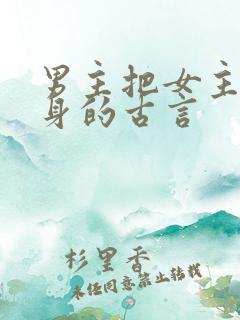 男主把女主
身的古言
杉里香
未经同意禁止转载